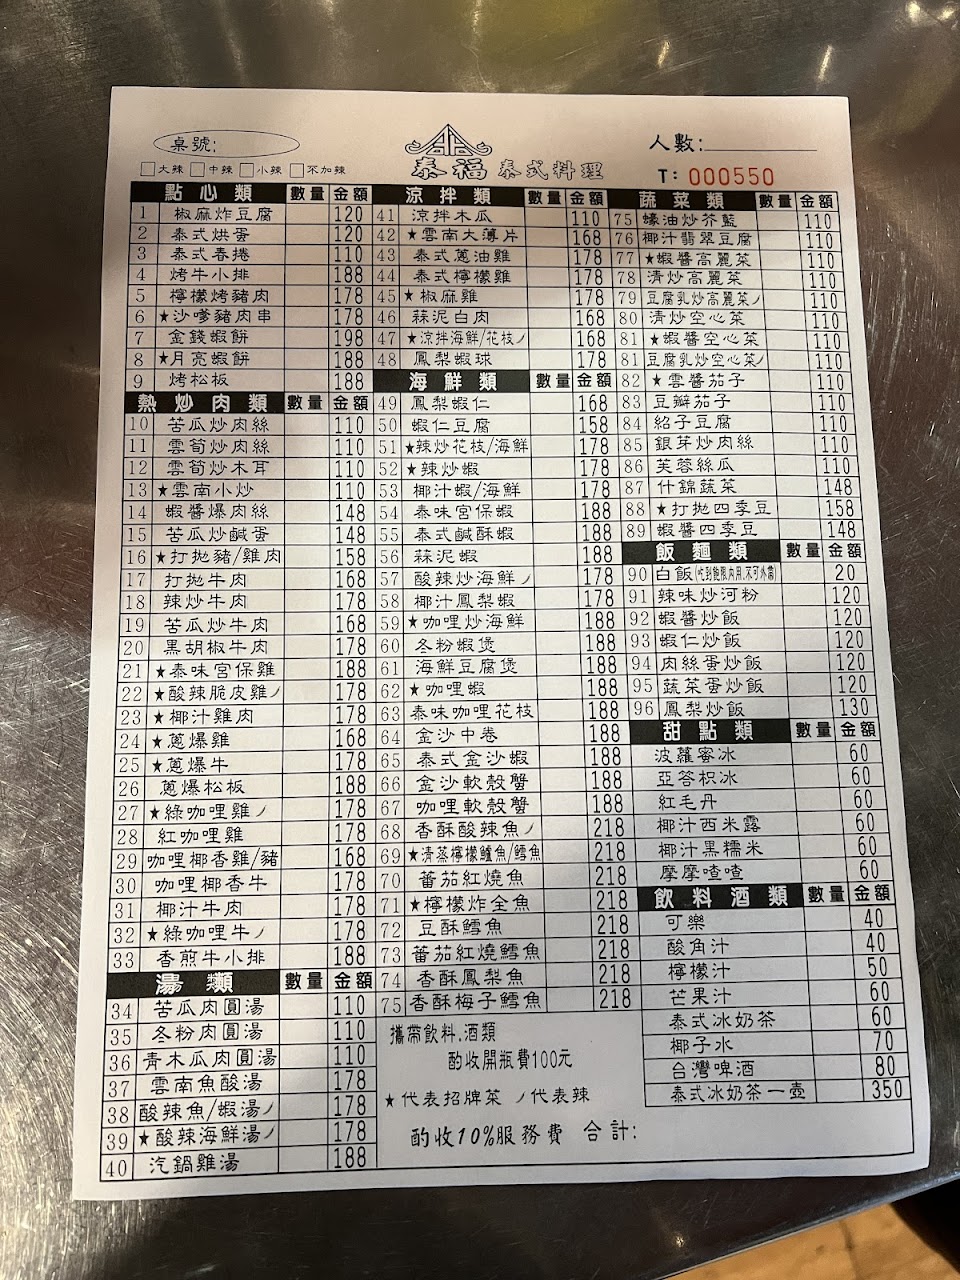 桌號:
人數:
泰福 泰式料理
□大辣 □中辣 □小辣 □不加辣
T: 000550
點心類 數量 金額
1 椒麻炸豆腐 120
2 泰式烘蛋 120
3 泰式春捲 110
4 烤牛小排 188
5 檸檬烤豬肉 178
6 ★沙嗲豬肉串 178
7 金錢蝦餅 198
8 ★月亮蝦餅 188
9 烤松板 188
熱炒肉類 數量 金額
10 苦瓜炒肉絲 110
11 雲筍炒肉絲 110
12 雲筍炒木耳 110
13 ★雲南小炒 110
14 蝦醬爆肉絲 148
15 苦瓜炒鹹蛋 148
16 ★打拋豬/雞肉 158
17 打拋牛肉 168
18 辣炒牛肉 178
19 苦瓜炒牛肉 168
20 黑胡椒牛肉 178
21 ★泰味宮保雞 188
22 ★酸辣脆皮雞ノ 178
23 ★椰汁雞肉 178
24 ★蔥爆雞 168
25 ★蔥爆牛 178
26 蔥爆松板 188
27 ★綠咖哩雞ノ 178
28 紅咖哩雞 178
29 咖哩椰香雞/豬 168
30 咖哩椰香牛 178
31 椰汁牛肉 178
32 ★綠咖哩牛ノ 178
33 香煎牛小排 188
湯類 數量 金額
34 苦瓜肉圓湯 110
35 冬粉肉圓湯 110
36 青木瓜肉圓湯 110
37 雲南魚酸湯 178
38 酸辣魚/蝦湯ノ 178
39 ★酸辣海鮮湯ノ 178
40 汽鍋雞湯 188
涼拌類 數量 金額
41 涼拌木瓜 110
42 ★雲南大薄片 168
43 泰式蔥油雞 178
44 泰式檸檬雞 178
45 ★椒麻雞 178
46 蒜泥白肉 168
47 ★涼拌海鮮/花枝ノ 168
48 鳳梨蝦球 178
海鮮類 數量 金額
49 鳳梨蝦仁 168
50 蝦仁豆腐 158
51 ★辣炒花枝/海鮮 178
52 ★辣炒蝦 178
53 椰汁蝦/海鮮 178
54 泰味宮保蝦 188
55 泰式鹹酥蝦 188
56 蒜泥蝦 188
57 酸辣炒海鮮ノ 178
58 椰汁鳳梨蝦 178
59 ★咖哩炒海鮮 188
60 冬粉蝦煲 188
61 海鮮豆腐煲 188
62 ★咖哩蝦 188
63 泰味咖哩花枝 188
64 金沙中卷 188
65 泰式金沙蝦 188
66 金沙軟殼蟹 188
67 咖哩軟殼蟹 188
68 香酥酸辣魚ノ 218
69 ★清蒸檸檬鱸魚/鱈魚 218
70 蕃茄紅燒魚 218
71 ★檸檬炸全魚 218
72 豆酥鱈魚 218
73 蕃茄紅燒鱈魚 218
74 香酥鳳梨魚 218
75 香酥梅子鱈魚 218
攜帶飲料.酒類
酌收開瓶費100元
★代表招牌菜 ノ代表辣
酌收10%服務費 合計:
蔬菜類 數量 金額
75 蠔油炒芥藍 110
76 椰汁翡翠豆腐 110
77 ★蝦醬高麗菜 110
78 清炒高麗菜 110
79 豆腐乳炒高麗菜ノ 110
80 清炒空心菜 110
81 ★蝦醬空心菜 110
81 豆腐乳炒空心菜ノ 110
82 ★雲醬茄子 110
83 豆瓣茄子 110
84 紹子豆腐 110
85 銀芽炒肉絲 110
86 芙蓉絲瓜 110
87 什錦蔬菜 148
88 ★打拋四季豆 158
89 蝦醬四季豆 148
飯麵類 數量 金額
90 白飯(吃到飽限內用.不可外帶) 20
91 辣味炒河粉 120
92 蝦醬炒飯 120
93 蝦仁炒飯 120
94 肉絲蛋炒飯 120
95 蔬菜蛋炒飯 120
96 鳳梨炒飯 130
甜點類 數量 金額
波蘿蜜冰 60
亞答枳冰 60
紅毛丹 60
椰汁西米露 60
椰汁黑糯米 60
摩摩喳喳 60
飲料酒類 數量 金額
可樂 40
酸角汁 40
檸檬汁 50
芒果汁 60
泰式冰奶茶 60
椰子水 70
台灣啤酒 80
泰式冰奶茶一壺 350